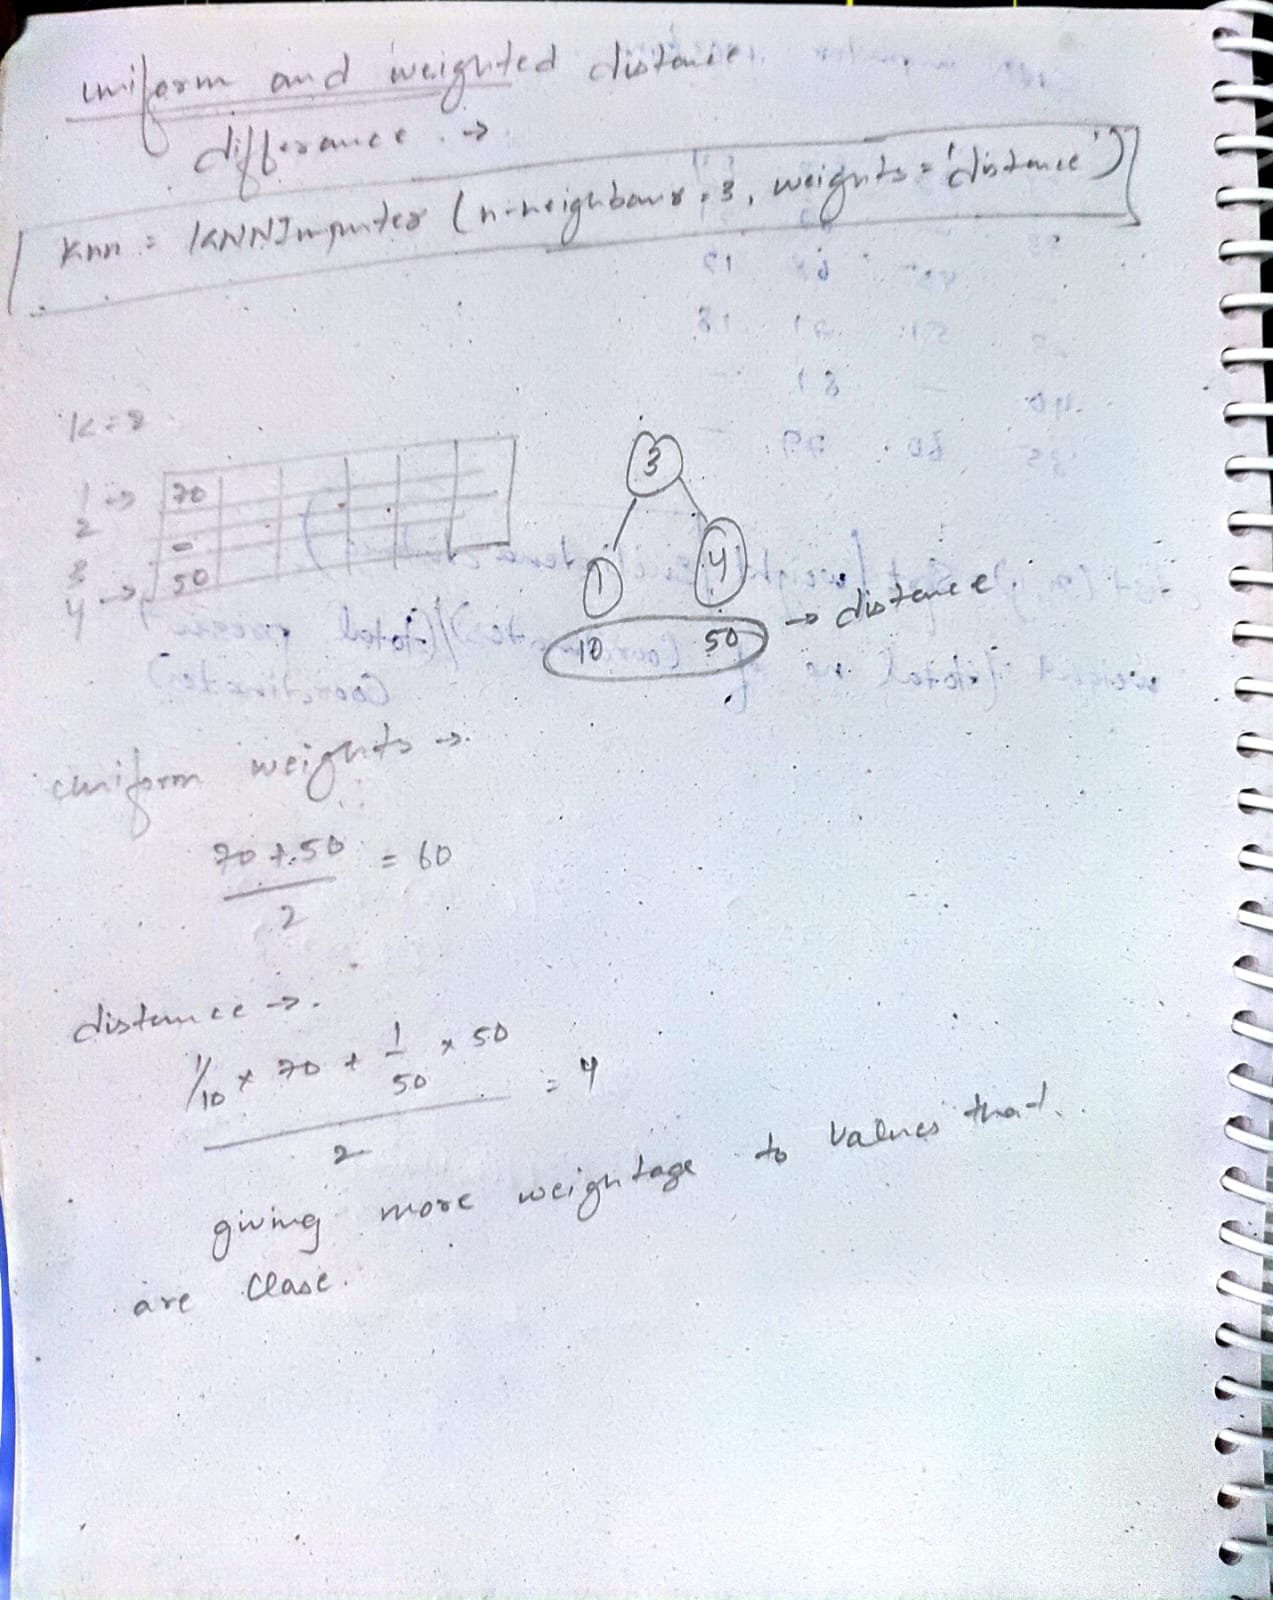 uniform and weighted distance
difference. →
Knn = KNNImputer (n-neighbours = 3, weights = 'distance')
K = 2
1 → 70
2
3 -
4 → 50
3
1 4
10 50 → distance
uniform weights →
70 + 50 = 60
2
distance →
1/10 × 70 + 1/50 × 50 = 4
2
giving more weightage to values that
are close.